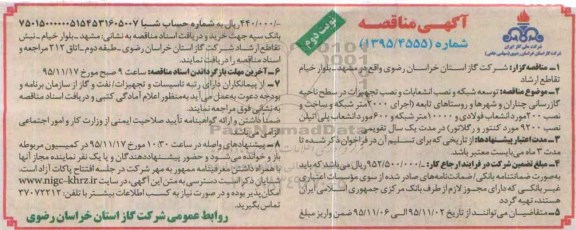 آگهی مناقصه
شماره (۱۳۹۵/۴۵۵۵)
نوبت دوم
شرکت ملی گاز ایران
شرکت گاز استان خراسان رضوی (سهامی خاص)
۱ـ مناقصه گزار: شرکت گاز استان خراسان رضوی واقع در مشهد ـ بلوار خیام
تقاطع ارشاد
۲ـ موضوع مناقصه: توسعه شبکه و نصب انشعابات و نصب تجهیزات در سطح ناحیه
گازرسانی چناران و شهرها و روستاهای تابعه (اجرای ۲۰۰۰متر شبکه و ساخت و
نصب ۲۰۰مورد انشعاب فولادی و ۱۰۰۰۰متر شبکه و ۶۰۰مورد انشعاب پلی اتیلن
نصب ۹۲۰۰ مورد کنتور و رگلاتور) در مدت یک سال تقویمی
۳ـ مدت اعتبار پیشنهادها: از تاریخی که برای تسلیم آن در فراخوان ذکر شده تا
مدت ۳ ماه می‌باست معتبر باشد.
۴ـ مبلغ تضمین شرکت در فرایند ارجاع کار: ۹۵۲/۵۰۰/۰۰۰ ریال می‌باشد که باید
به صورت ضمانتنامه بانکی / ضمانت‌نامه‌های صادر شده از سوی مؤسسات اعتباری
غیر بانکی که دارای مجوز لازم از طرف بانک مرکزی جمهوری اسلامی ایران
هستند، تهیه گردد
۵ـ متقاضیان می‌توانند از تاریخ ۹۵/۱۱/۰۲ الی ۹۵/۱۱/۰۶ ضمن واریز مبلغ
۴۴۰/۰۰۰/ـ ریال به شماره حساب شبا ۷۵۰۱۵۰۰۰۰۰۰۵۱۵۴۵۳۱۶۰۵۰۰۷
بانک سپه جهت خرید و دریافت اسناد مناقصه به نشانی: مشهد ـ بلوار خیام ـ نبش
تقاطع ارشاد شرکت گاز استان خراسان رضوی ـ طبقه دوم ـ اتاق ۳۱۲ مراجعه و
اسناد مناقصه را دریافت نمایند.
۶ـ آخرین مهلت بازگرداندن اسناد مناقصه: ساعت ۹ صبح مورخ ۹۵/۱۱/۱۷
۷ـ از پیمانکاران دارای رتبه تاسیسات و تجهیزات/ نفت و گاز از سازمان برنامه و
بودجه دعوت به عمل می‌آید به منظور اعلام آمادگی کتبی و دریافت اسناد مناقصه
به نشانی فوق مراجعه نمایند.
ضمناً داشتن و ارائه گواهینامه تأیید صلاحیت ایمنی از وزارت کار و امور اجتماعی
الزامی می‌باشد.
۸ـ پیشنهادهای واصله در ساعت ۱۰:۳۰ مورخ ۹۵/۱۱/۱۷ در کمیسیون مربوطه
باز و خوانده می‌شود و حضور پیشنهاددهندگان و یا یک نفر نماینده مجاز آنها
با همراه داشتن معرفینامه ممهور به مهر شرکت در جلسه افتتاح پاکات آزاد است.
شایان ذکر است دسترسی به متن این آگهی، در سایت www.nigc-khrz.ir
امکان پذیر بوده و در صورت نیاز به کسب اطلاعات بیشتر با تلفن: ۳۷۰۷۲۲۱۲
تماس بگیرید.
روابط عمومی شرکت گاز استان خراسان رضوی